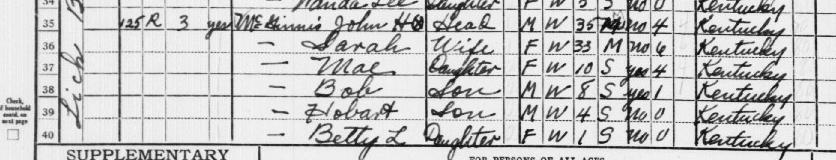 34 Wanda Lee Daughter F W 5 S no 0 Kentucky
35 125 R 3 yes McGinnis John H Head M W 35 M no 4 Kentucky
36 — Sarah Wife F W 33 M no 6 Kentucky
37 — Mae Daughter F W 10 S yes 4 Kentucky
38 — Bob Son M W 8 S yes 1 Kentucky
39 — Hobart Son M W 4 S no 0 Kentucky
40 — Betty L Daughter F W 1 S no 0 Kentucky
Check, if household contd. on next page
SUPPLEMENTARY
FOR PERSONS OF ALL AGES